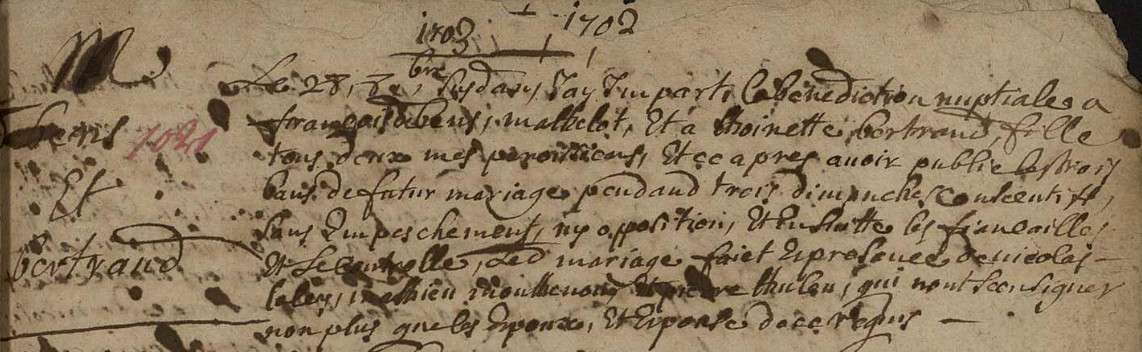 1702
1703
M
Le 28, xbre, susdan, Jay Imparti la benediction nuptiale a
francois obens, mathelot, Et a thoinette bertrand, fille
tous deux mes peroissiens, Et ce apres avoir publie les trois
bans de futur mariage pendand trois dimanches consecutifs,
sans Empeschement, ny opposition, Et Ensuitte les fiancailles
Et le controlle, Led mariage faict En presence de nicolas
mathieu Et pierre qui nont sceu signer
non plus que les Epoux, Et Epouse de ce requis
obens
1021
Et
bertrand